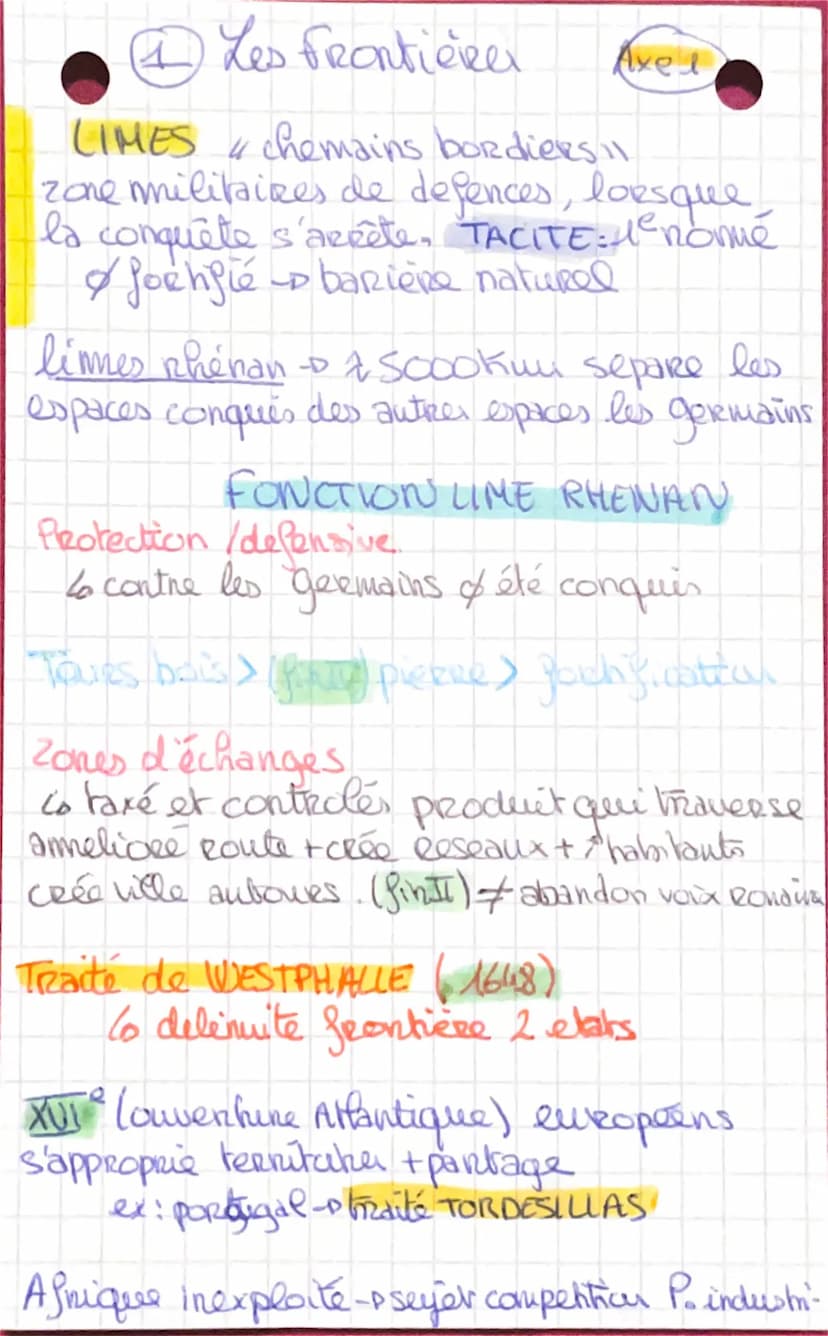 1 Les frontières Axe 1
LIMES "chemains bordiers"
zone militaires de defences, lorsque
la conquête s'arrête. TACITE: 1e nomé
∅ fortifié → barière naturel
limes rhénan → ≈ 5000Km separe les
espaces conquis des autres espaces les germains
FONCTION LIME RHENAN
Protection / defensive
↳ contre les germains ∅ été conquis
Tours bois > (fin II) pierre > fortification
Zones d'échanges
↳ taxé et controlés produit qui traverse
ameliore route + crée reseaux + ↗ habitants
crée ville autours. (fin II) ≠ abandon voix romaine
Traité de WESTPHALIE (1648)
↳ delimite frontière 2 etats
XVIe (ouverture Atlantique) européens
s'approprie territoires + partage
ex: portugal → traité TORDESILLAS
Afrique inexploité → sujet competition P. industri-